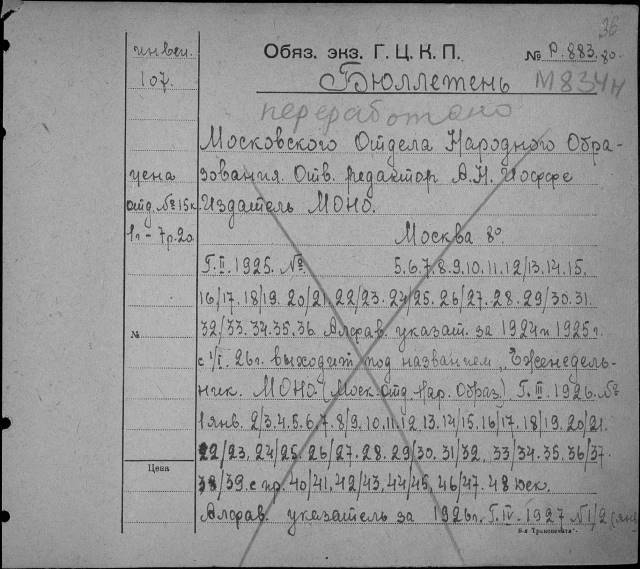 36
инвен. Обяз. экз. Г. Ц. К. П. № Р. 883. 80.
107. Бюллетень М834н
переработано
Московского Отдела Народного Обра-
цена зования. Отв. редактор А. Н. Иоффе
отд. № 15к. Издатель МОНО.
1г - 7р.20 Москва 8о.
Г. II. 1925. № 5.6.7.8.9.10.11.12/13.14.15.
16/17.18/19.20/21.22/23.24/25.26/27.28.29/30.31.
№ 32/33.34.35.36. Алфав. указат. за 1924 и 1925 г.
с 1/I. 26г. выходит под названием „Еженедель-
ник. МОНО. (Моск. Отд. Нар. Образ.) Г. III. 1926. №
1 янв. 2/3.4.5.6.7.8/9.10.11.12.13.14/15.16/17.18/19.20/21.
22/23.24/25.26/27.28.29/30.31/32.33/34.35.36/37.
Цена
38/39. с пр. 40/41.42/43.44/45.46/47.48 дек.
Алфав. указатель за 1926г. Г. IV. 1927 №1/2 (янв
6-я „Транспечать“.